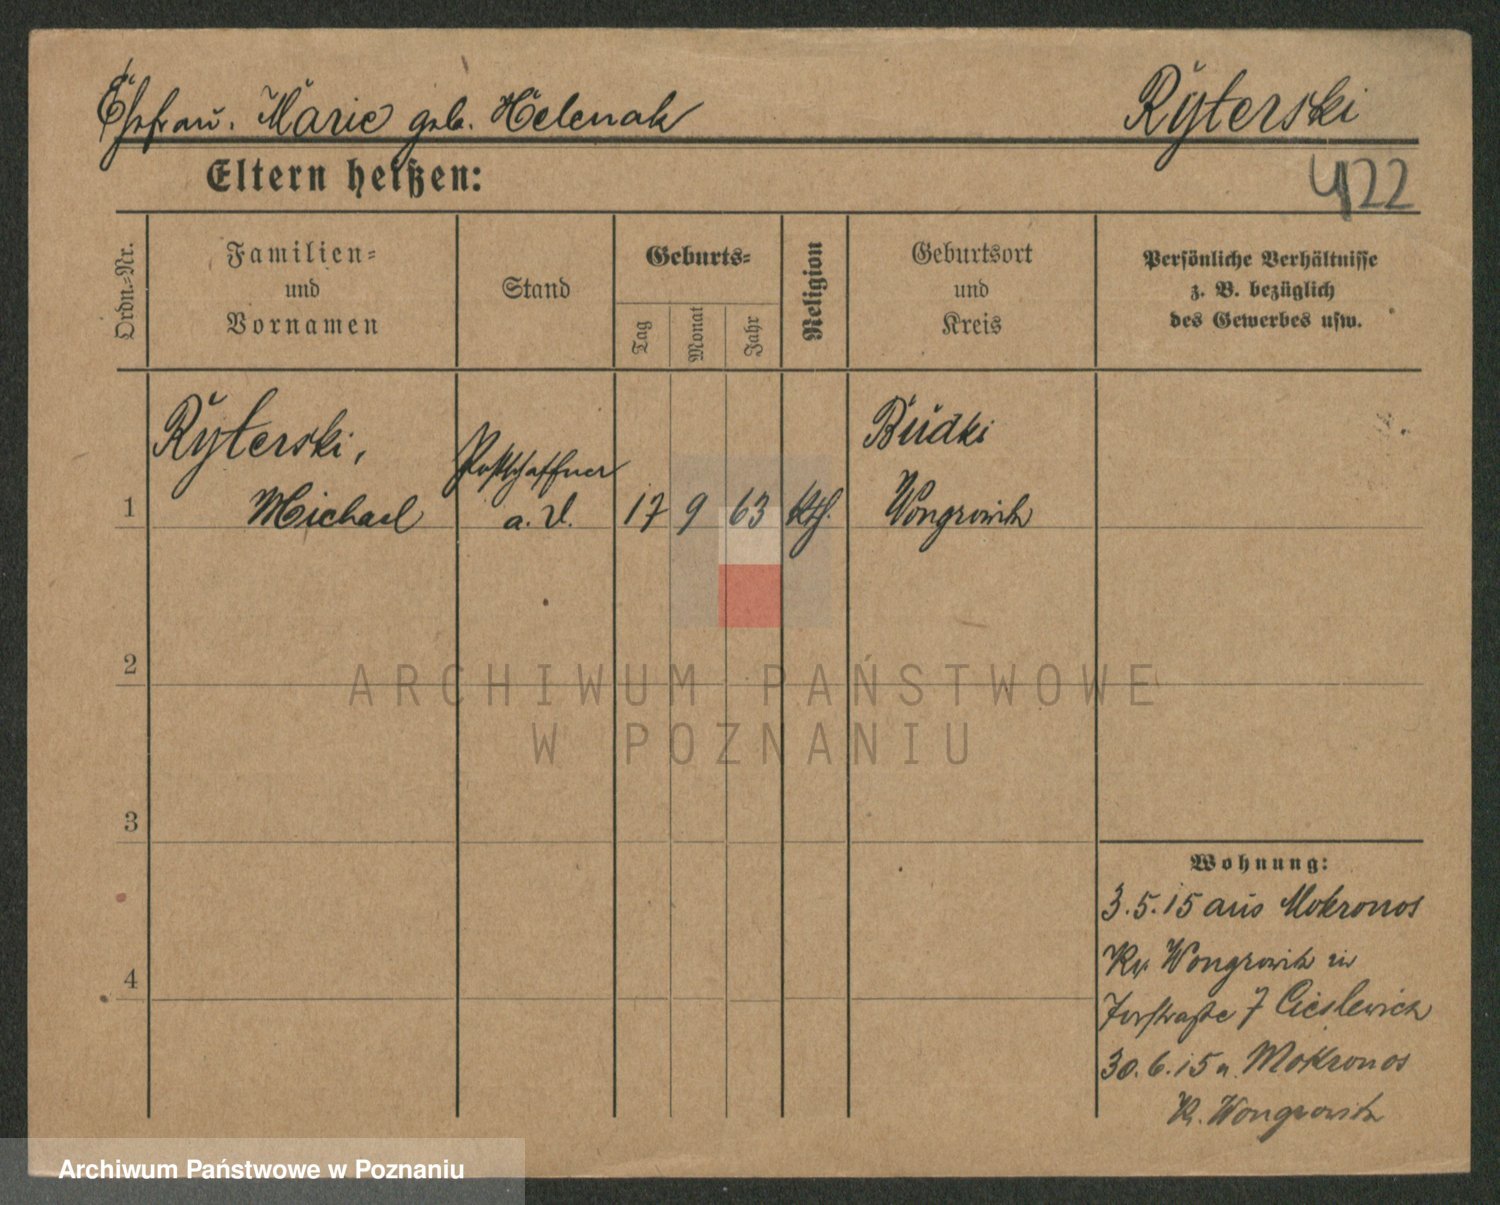 Ehefrau. Marie geb. Helenak
Ryterski
Eltern heißen:
422
Ordn.-Nr.
Familien-
und
Vornamen
Stand
Geburts-
Tag
Monat
Jahr
Religion
Geburtsort
und
Kreis
Persönliche Verhältnisse
z. B. bezüglich
des Gewerbes usw.
1
Ryterski,
Michael
Postschaffner
a. D.
17
9
63
kth.
Budki
Wongrowitz
2
3
4
Wohnung:
3.5.15 aus Mokronos
Kr. Wongrowitz in
7 Cieslewicz
30.6.15 n. Mokronos
K. Wongrowitz
ARCHIWUM PAŃSTWOWE
W POZNANIU
Archiwum Państwowe w Poznaniu